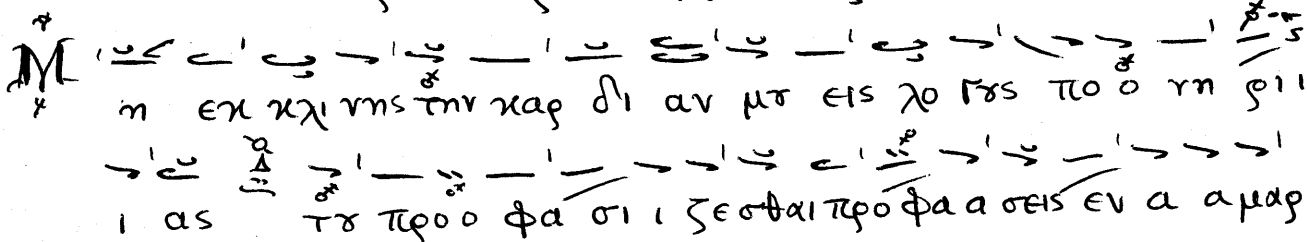 Μ η εκ κλι νης την καρ δι αν μȣ εις λο γȣς πο ο νη ρι ι
ι ας τȣ προ ο φα σι ι ζε σθαι προ φα α σεις εν α α μαρ